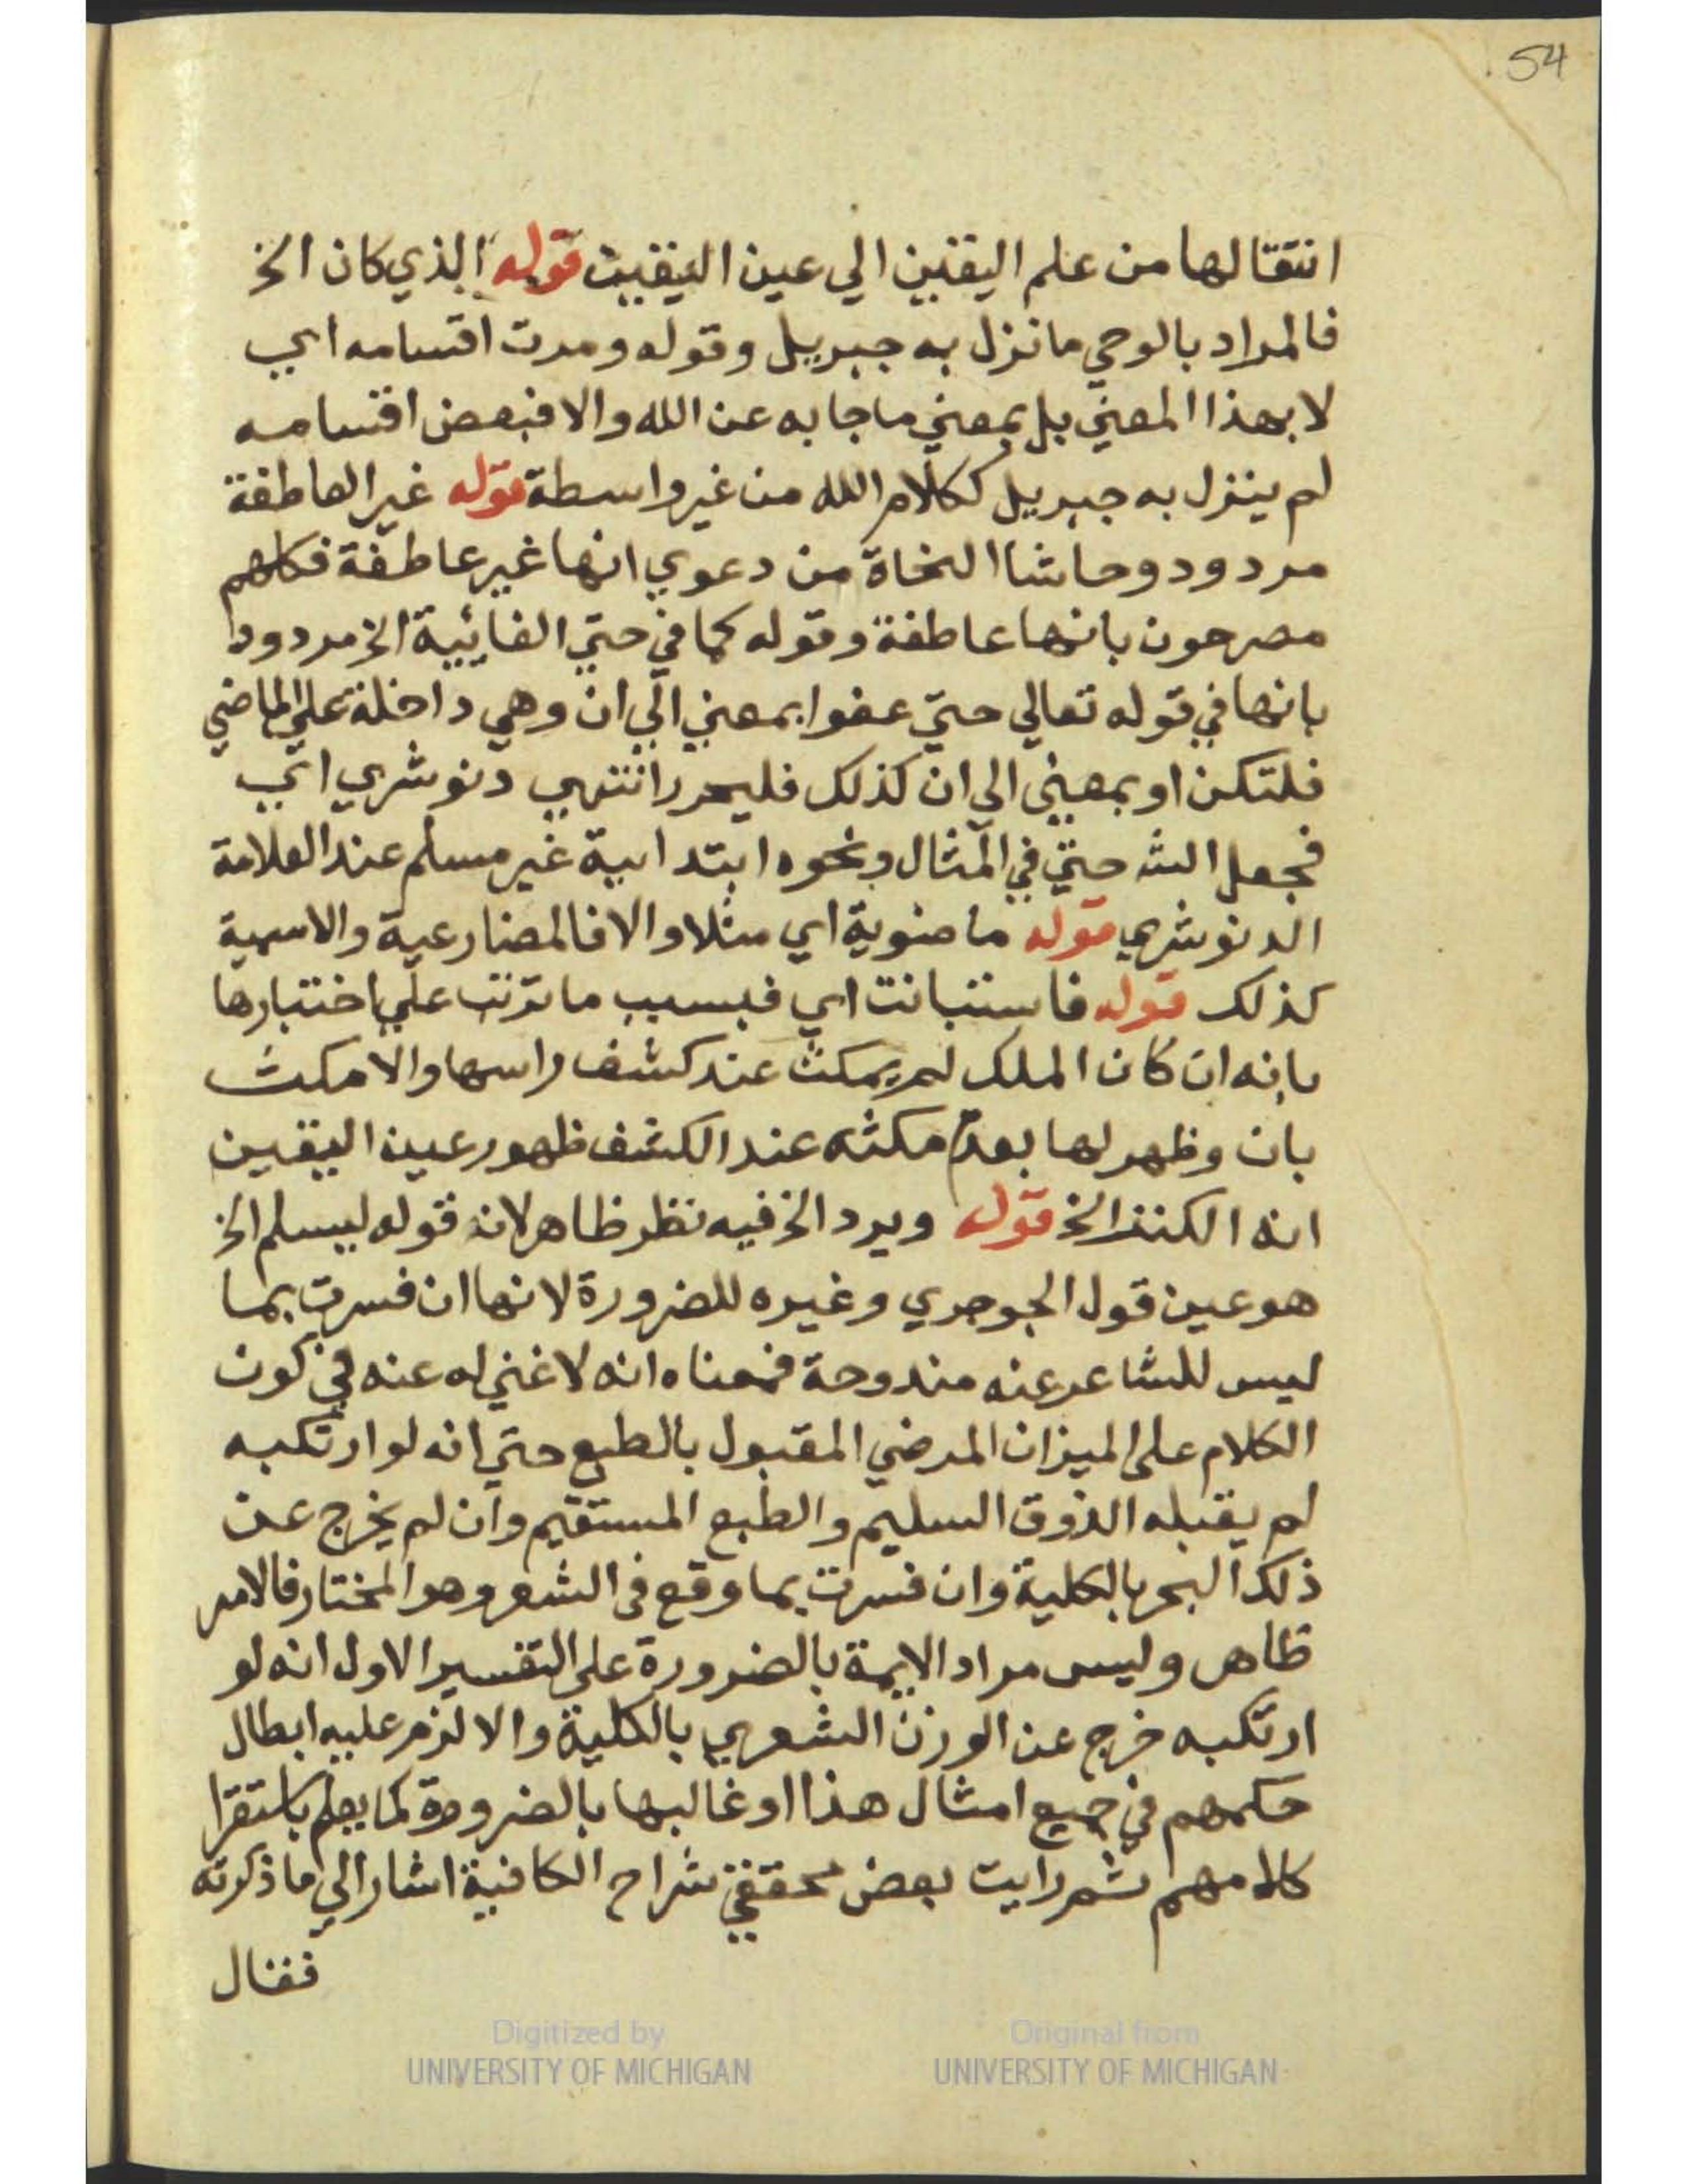 54
انتقالها من علم اليقين الي عين اليقين قوله الذي كان الخ
فالمراد بالوحي ما نزل به جبريل وقوله ومرت اقسامه اي
لا بهذا المعني بل بمعني ما جا به عن الله والا فبعض اقسامه
لم ينزل به جبريل ككلام الله من غير واسطة قوله غير العاطفة
مردود وحاشا النحاة من دعوي انها غير عاطفة فكلهم
مصرحون بانها عاطفة وقوله كما في حتي الغايية الخ مردود
بانها في قوله تعالي حتي عفوا بمعني الي ان وهي داخلة علي الماضي
فلتكن او بمعني الي ان كذلك فليحرر انتهي دنوشري اي
فجعل الش حتي في المثال ونحوه ابتدايية غير مسلم عند العلامة
الدنوشري قوله ماضوية اي مثلا والا فالمضارعية والاسمية
كذلك قوله فاستبانت اي فبسبب ما ترتب علي اختبارها
بانه ان كان الملك لم يمكث عند كشف راسها والا مكث
بان وظهر لها بعدم مكثه عند الكشف ظهور عين اليقين
انه الكنز الخ قوله ويرد الخ فيه نظر ظاهر لان قوله ليسلم الخ
هو عين قول الجوجري وغيره للضرورة لانها ان فسرت بما
ليس للشاعر عنه مندوحة فمعناه انه لا غني له عنه في كون
الكلام علي الميزان المرضي المقبول بالطبع حتي انه لو ارتكبه
لم يقبله الذوق السليم والطبع المستقيم وان لم يخرج عن
ذلك البحر بالكلية وان فسرت بما وقع في الشعر وهو المختار فالامر
ظاهر وليس مراد الايمة بالضرورة علي التفسير الاول انه لو
ارتكبه خرج عن الوزن الشعري بالكلية والا لزم عليه ابطال
حكمهم في جميع امثال هذا او غالبها بالضرورة كما يعلم باستقرا
كلامهم ثم رايت بعض محققي شراح الكافية اشار الي ما ذكرته
فقال
Digitized by
UNIVERSITY OF MICHIGAN
Original from
UNIVERSITY OF MICHIGAN